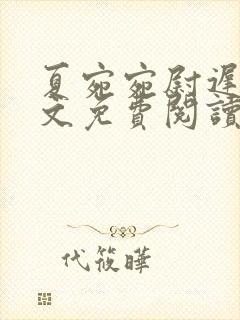 夏宛宛尉遲
文免費閱讀
代筱曄